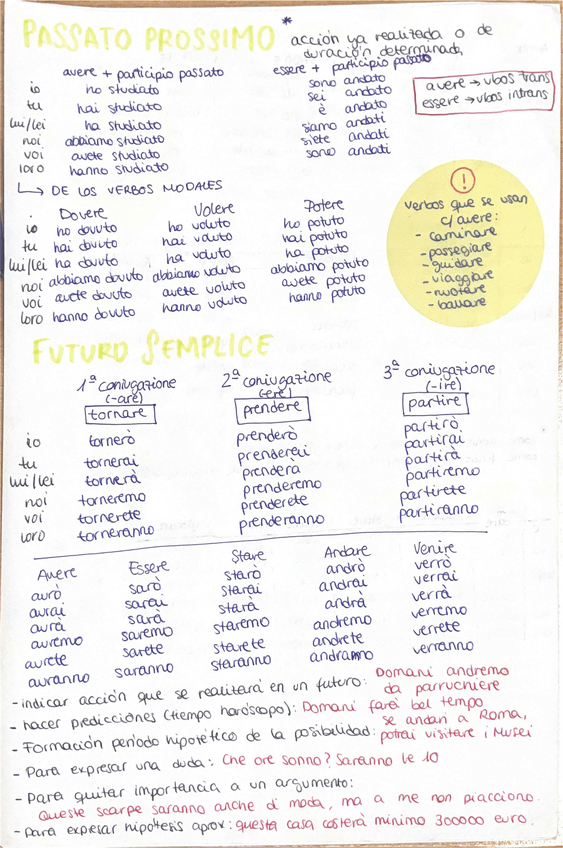 PASSATO PROSSIMO * acción ya realizada o de
duración determinada
avere + participio passato
essere + participio passato
io ho studiato sono andato
tu hai studiato sei andato
lui/lei ha studiato è andato
noi abbiamo studiato siamo andati
voi avete studiato siete andati
loro hanno studiato sono andati
avere → vbos trans
essere → vbos intrans
↳ DE LOS VERBOS MODALES
Dovere Volere Potere
io ho dovuto ho voluto ho potuto
tu hai dovuto hai voluto hai potuto
lui/lei ha dovuto ha voluto ha potuto
noi abbiamo dovuto abbiamo voluto abbiamo potuto
voi avete dovuto avete voluto avete potuto
loro hanno dovuto hanno voluto hanno potuto
!
verbos que se usan
c/ avere:
- caminare
- passegiare
- guidare
- viaggiare
- nuotare
- ballare
FUTURO SEMPLICE
1ª coniugazione 2ª coniugazione 3ª coniugazione
(-are) (-ere) (-ire)
tornare prendere partire
io tornerò prenderò partirò
tu tornerai prenderai partirai
lui/lei tornerà prendera partirà
noi torneremo prenderemo partiremo
voi tornerete prenderete partirete
loro torneranno prenderanno partiranno
Avere Essere Stare Andare Venire
avrò sarò starò andrò verrò
avrai sarai starai andrai verrai
avrà sarà starà andrà verrà
avremo saremo staremo andremo verremo
avrete sarete starete andrete verrete
avranno saranno staranno andranno verranno
- indicar acción que se realizará en un futuro: Domani andremo
da parruchiere
- hacer predicciónes (tiempo horóscopo): Domani farei bel tempo
- Formación período hipotético de la posibilidad: se andari a Roma,
potrai visitare i Musei
- Para expresar una duda: Che ore sonno? Saranno le 10
- Para quitar importancia a un argumento:
Queste scarpe saranno anche di moda, ma a me non piacciono.
- para expresar hipótesis aprox: questa casa costerà minimo 300000 euro.